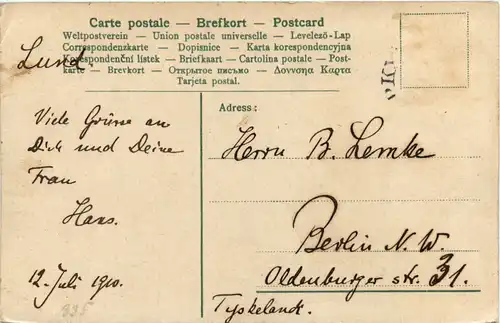 Carte postale — Brefkort — Postcard
Weltpostverein — Union postale universelle — Levelező-Lap
Correspondenzkarte — Dopisnice — Karta korespondencyjna
Korespondenční lístek — Briefkaart — Cartolina postale — Post-
karte — Brevkort — Открытое письмо — Δοννσηα Καρτα
Tarjeta postal.
Lund.
Viele Grüsse an
Dich und Deine
Frau
Hans.
12. Juli 1910.
335
Adress:
Herrn B. Lemke
Berlin N. W.
Oldenburger str. 31.
Tyskeland.